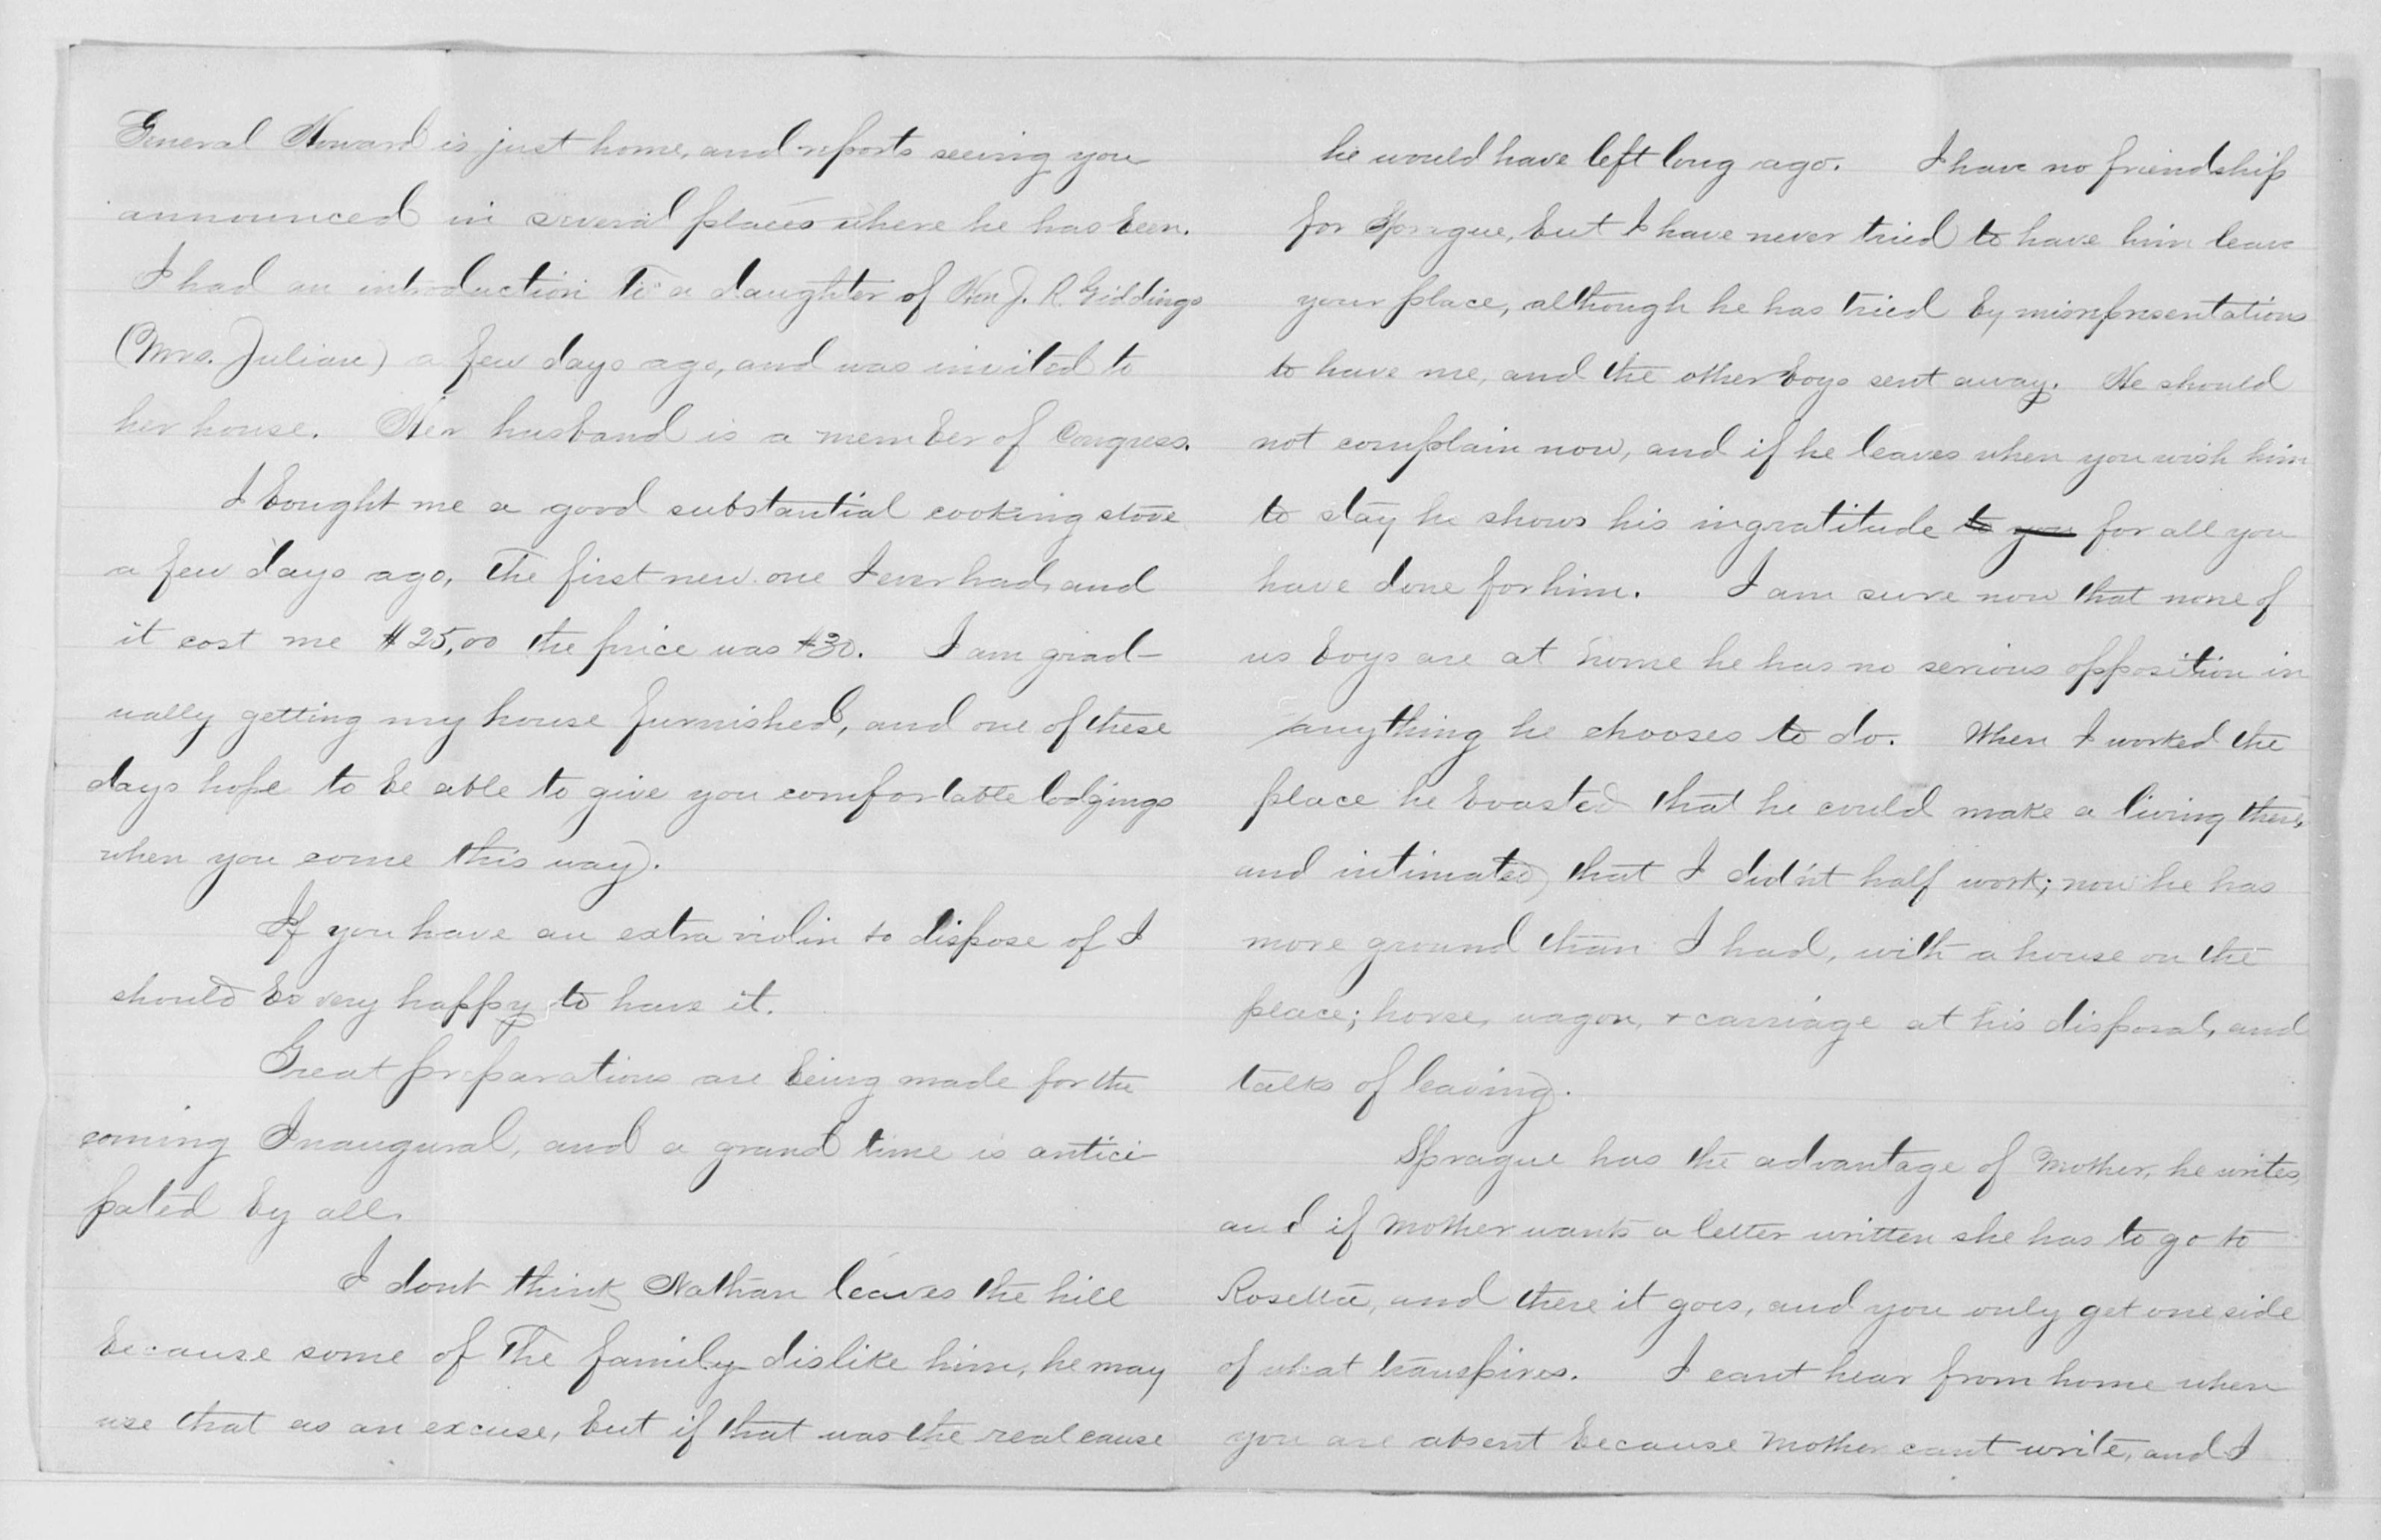 General Howard is just home, and reports seeing you
announced in several places where he has been.
I had an introduction to a daughter of Hon J. R. Giddings
(Mrs. Julian) a few days ago, and was invited to
her house. Her husband is a member of Congress.
I bought me a good substantial cooking stove
a few days ago, The first new one I ever had, and
it cost me $25,00 the price was $30. I am grad-
ually getting my house furnished, and one of these
days hope to be able to give you comfortable lodgings
when you come this way.
If you have an extra violin to dispose of I
should be very happy to have it.
Great preparations are being made for the
coming Inaugural, and a grand time is antici-
pated by all.
I dont think Nathan leaves the hill
because some of The family dislike him, he may
use that as an excuse, but if that was the real cause
he would have left long ago. I have no friendship
for Sprague, but I have never tried to have him leave
your place, although he has tried by misrepresentations
to have me, and the other boys sent away. He should
not complain now, and if he leaves when you wish him
to stay he shows his ingratitude to you for all you
have done for him. I am sure now that none of
us boys are at home he has no serious opposition in
anything he chooses to do. When I worked the
place he boasted that he could make a living there,
and intimated that I did'nt half work; now he has
more ground than I had, with a house on the
place; horse, wagon, + carriage at his disposal, and
talks of leaving.
Sprague has the advantage of Mother, he writes,
and if Mother wants a letter written she has to go to
Rosetta, and there it goes, and you only get one side
of what transpires. I cant hear from home when
you are absent because Mother cant write, and I